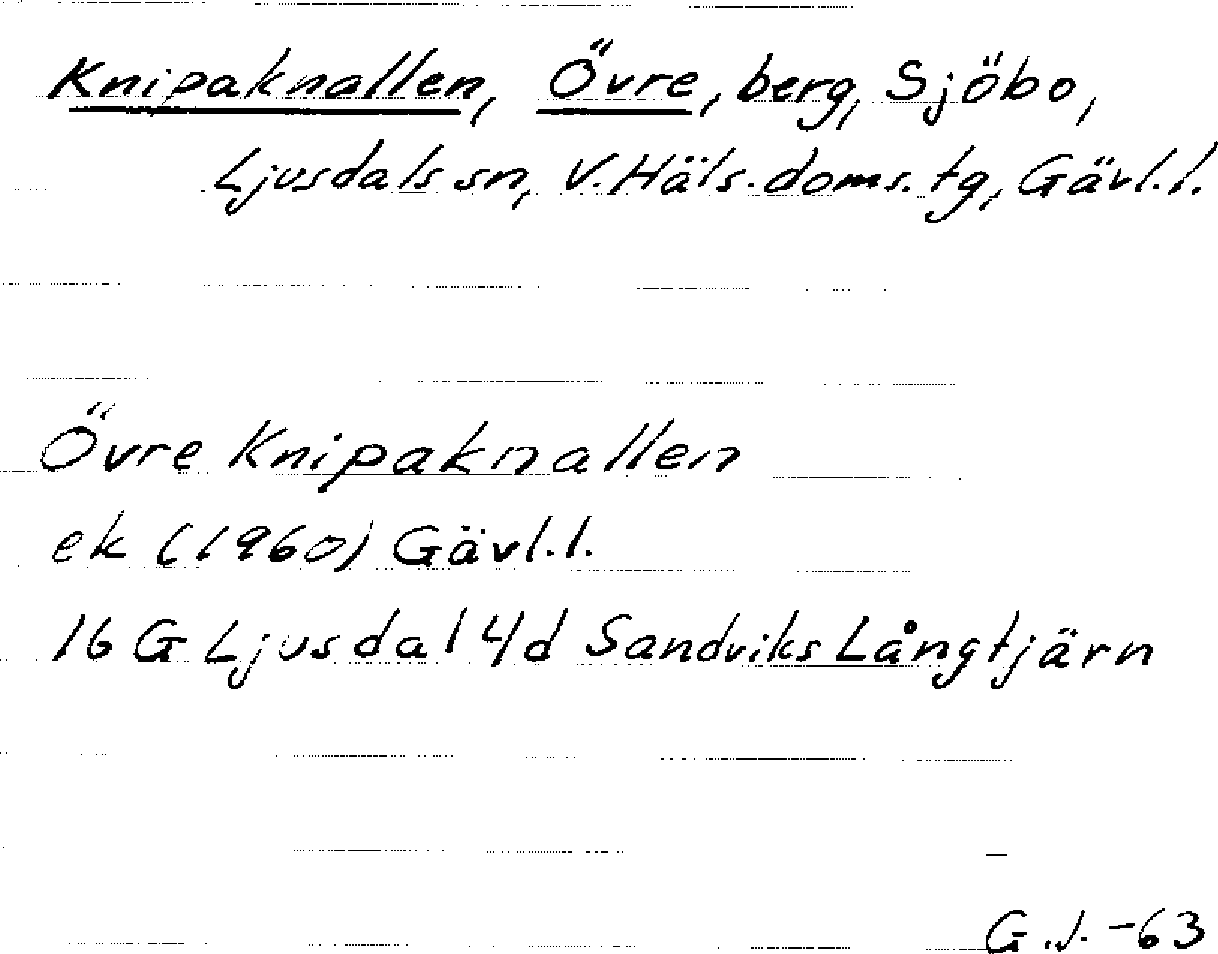 Knipaknallen, Övre, berg, Sjöbo,
Ljusdals sn, V. Häls. doms. tg, Gävl. l.
Övre Knipaknallen
ek (1960) Gävl. l.
16 G Ljusdal 4d Sandviks Långtjärn
G.J. -63